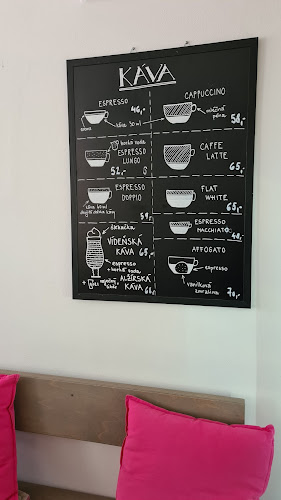 KÁVA
ESPRESSO
46,-
káva 30 ml
CAPPUCCINO
mléčná
pěna
58,-
horká voda
ESPRESSO
LUNGO
52,-
CAFFE
LATTE
65,-
ESPRESSO
DOPPIO
59,-
FLAT
WHITE
65,-
ESPRESSO
MACCHIATO
48,-
šlehačka
VÍDEŇSKÁ
KÁVA
65,-
espresso
+ horká voda
ALŽÍRSKÁ
KÁVA
AFFOGATO
espresso
vanilková
zmrzlina
70,-